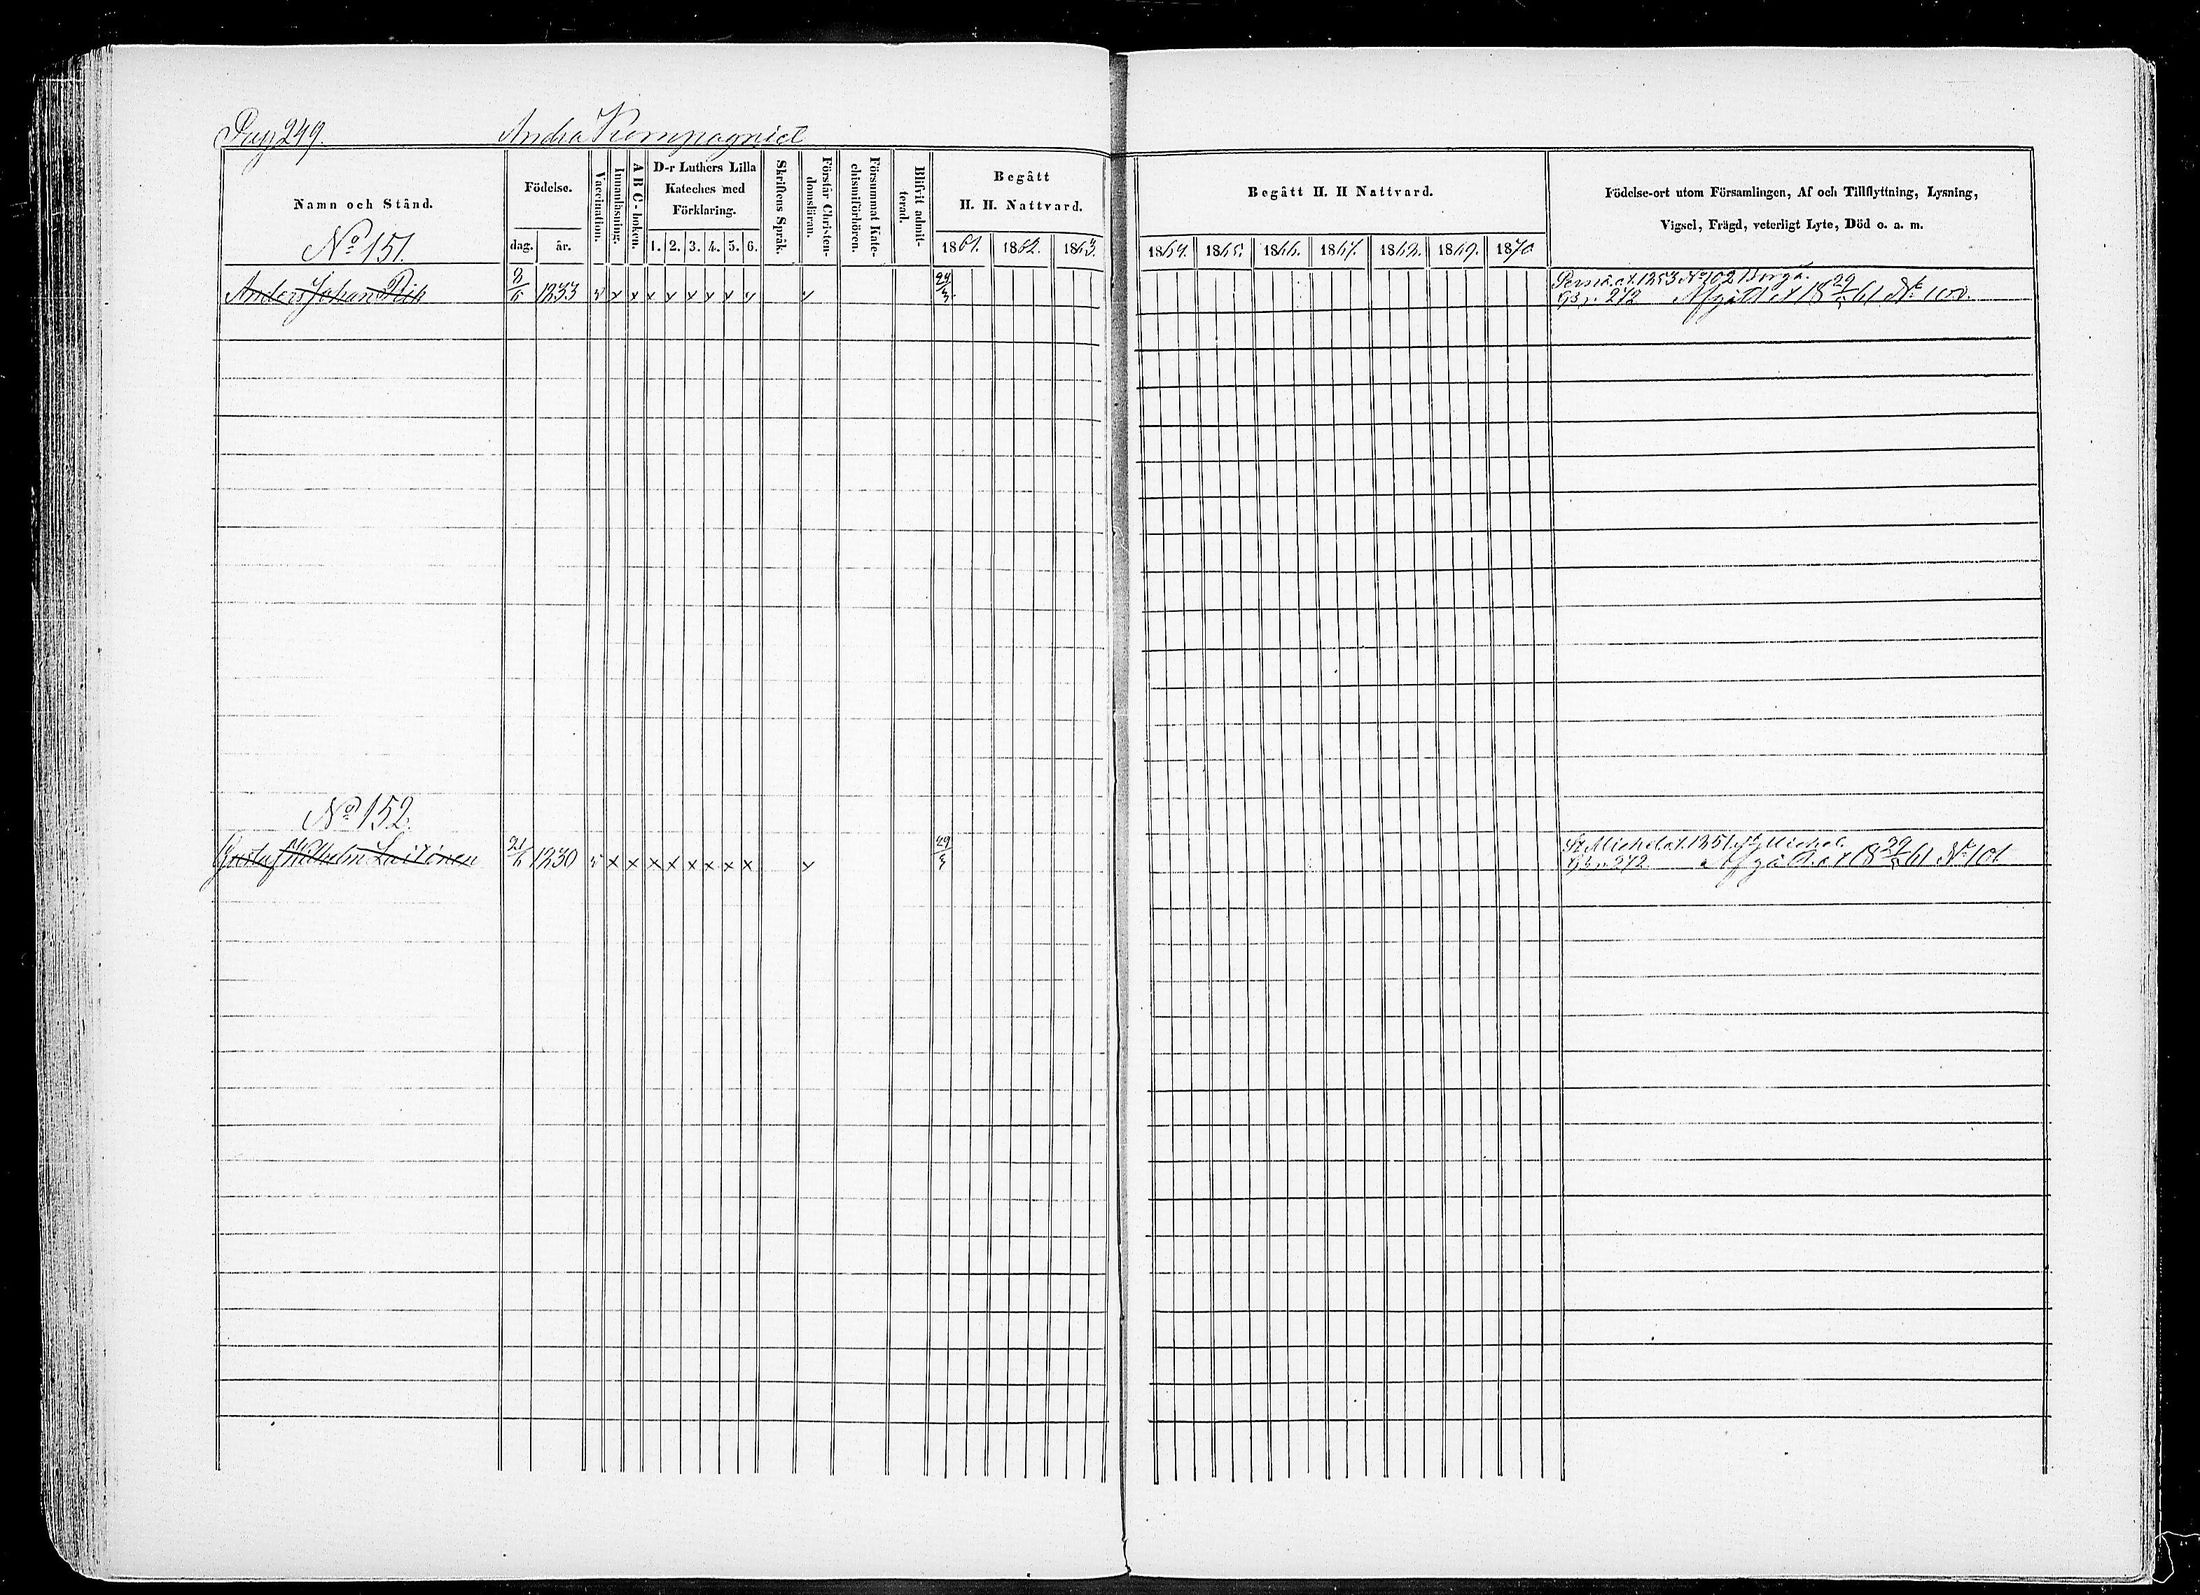 Pag. 249. Andra Kompagniet
Namn och Stånd. Födelse. Vaccination. Innanläsning. A B C-boken. D-r Luthers Lilla Kateches med Förklaring. Skriftens Språk. Förstår Christendomsläran. Försummat Katechismiförhören. Blifvit admitterad. Begått H. H. Nattvard. Begått H. H Nattvard. Födelse-ort utom Församlingen, Af och Tillflyttning, Lysning,
Vigsel, Frägd, veterligt Lyte, Död o. a. m.
dag. år. 1. 2. 3. 4. 5. 6. 1861. 1862. 1863. 1864. 1865. 1866. 1867. 1868. 1869. 1870
No 151.
Anders Johan Rik 2/6 1833 v x x x x x x x x x 24/3 Pernå at. 1853 No 102 Borgå.
Gb p. 272 Afgått at 18 29/5 61 No 100.
No 152.
Gustaf Wilhelm Laitinen 21/6 1830 v x x x x x x x x x 24/3 St Michel at. 1851 St Michel.
Gb p. 272. Afgått at 18 29/5 61 No 101